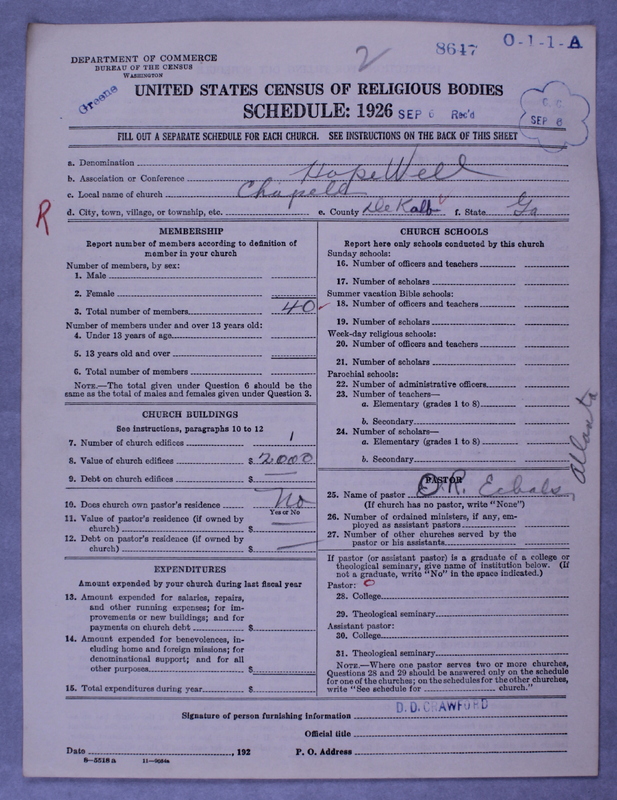 2
8647
O-1-1-A
DEPARTMENT OF COMMERCE
BUREAU OF THE CENSUS
WASHINGTON
Greene
UNITED STATES CENSUS OF RELIGIOUS BODIES
SCHEDULE: 1926
SEP 6 Rec'd
SEP 6
FILL OUT A SEPARATE SCHEDULE FOR EACH CHURCH. SEE INSTRUCTIONS ON THE BACK OF THIS SHEET
a. Denomination
b. Association or Conference HopeWell
c. Local name of church Chapell
d. City, town, village, or township, etc. e. County DeKalb f. State Ga
R
MEMBERSHIP
Report number of members according to definition of
member in your church
Number of members, by sex:
1. Male
2. Female
3. Total number of members 40
Number of members under and over 13 years old:
4. Under 13 years of age
5. 13 years old and over
6. Total number of members
NOTE.—The total given under Question 6 should be the
same as the total of males and females given under Question 3.
CHURCH BUILDINGS
See instructions, paragraphs 10 to 12
7. Number of church edifices 1
8. Value of church edifices $ 2000
9. Debt on church edifices $
10. Does church own pastor's residence No
Yes or No
11. Value of pastor's residence (if owned by
church) $
12. Debt on pastor's residence (if owned by
church) $
EXPENDITURES
Amount expended by your church during last fiscal year
13. Amount expended for salaries, repairs,
and other running expenses; for im-
provements or new buildings; and for
payments on church debt $
14. Amount expended for benevolences, in-
cluding home and foreign missions; for
denominational support; and for all
other purposes $
15. Total expenditures during year $
CHURCH SCHOOLS
Report here only schools conducted by this church
Sunday schools:
16. Number of officers and teachers
17. Number of scholars
Summer vacation Bible schools:
18. Number of officers and teachers
19. Number of scholars
Week-day religious schools:
20. Number of officers and teachers
21. Number of scholars
Parochial schools:
22. Number of administrative officers
23. Number of teachers—
a. Elementary (grades 1 to 8)
b. Secondary
24. Number of scholars—
a. Elementary (grades 1 to 8)
b. Secondary
PASTOR
25. Name of pastor O.R. Echols, Atlanta
(If church has no pastor, write "None")
26. Number of ordained ministers, if any, em-
ployed as assistant pastors
27. Number of other churches served by the
pastor or his assistants
If pastor (or assistant pastor) is a graduate of a college or
theological seminary, give name of institution below. (If
not a graduate, write "No" in the space indicated.)
Pastor: 0
28. College
29. Theological seminary
Assistant pastor:
30. College
31. Theological seminary
NOTE.—Where one pastor serves two or more churches,
Questions 28 and 29 should be answered only on the schedule
for one of the churches; on the schedules for the other churches,
write "See schedule for church."
Signature of person furnishing information D. D. CRAWFORD
Official title
Date , 192 P. O. Address
8-5518 a